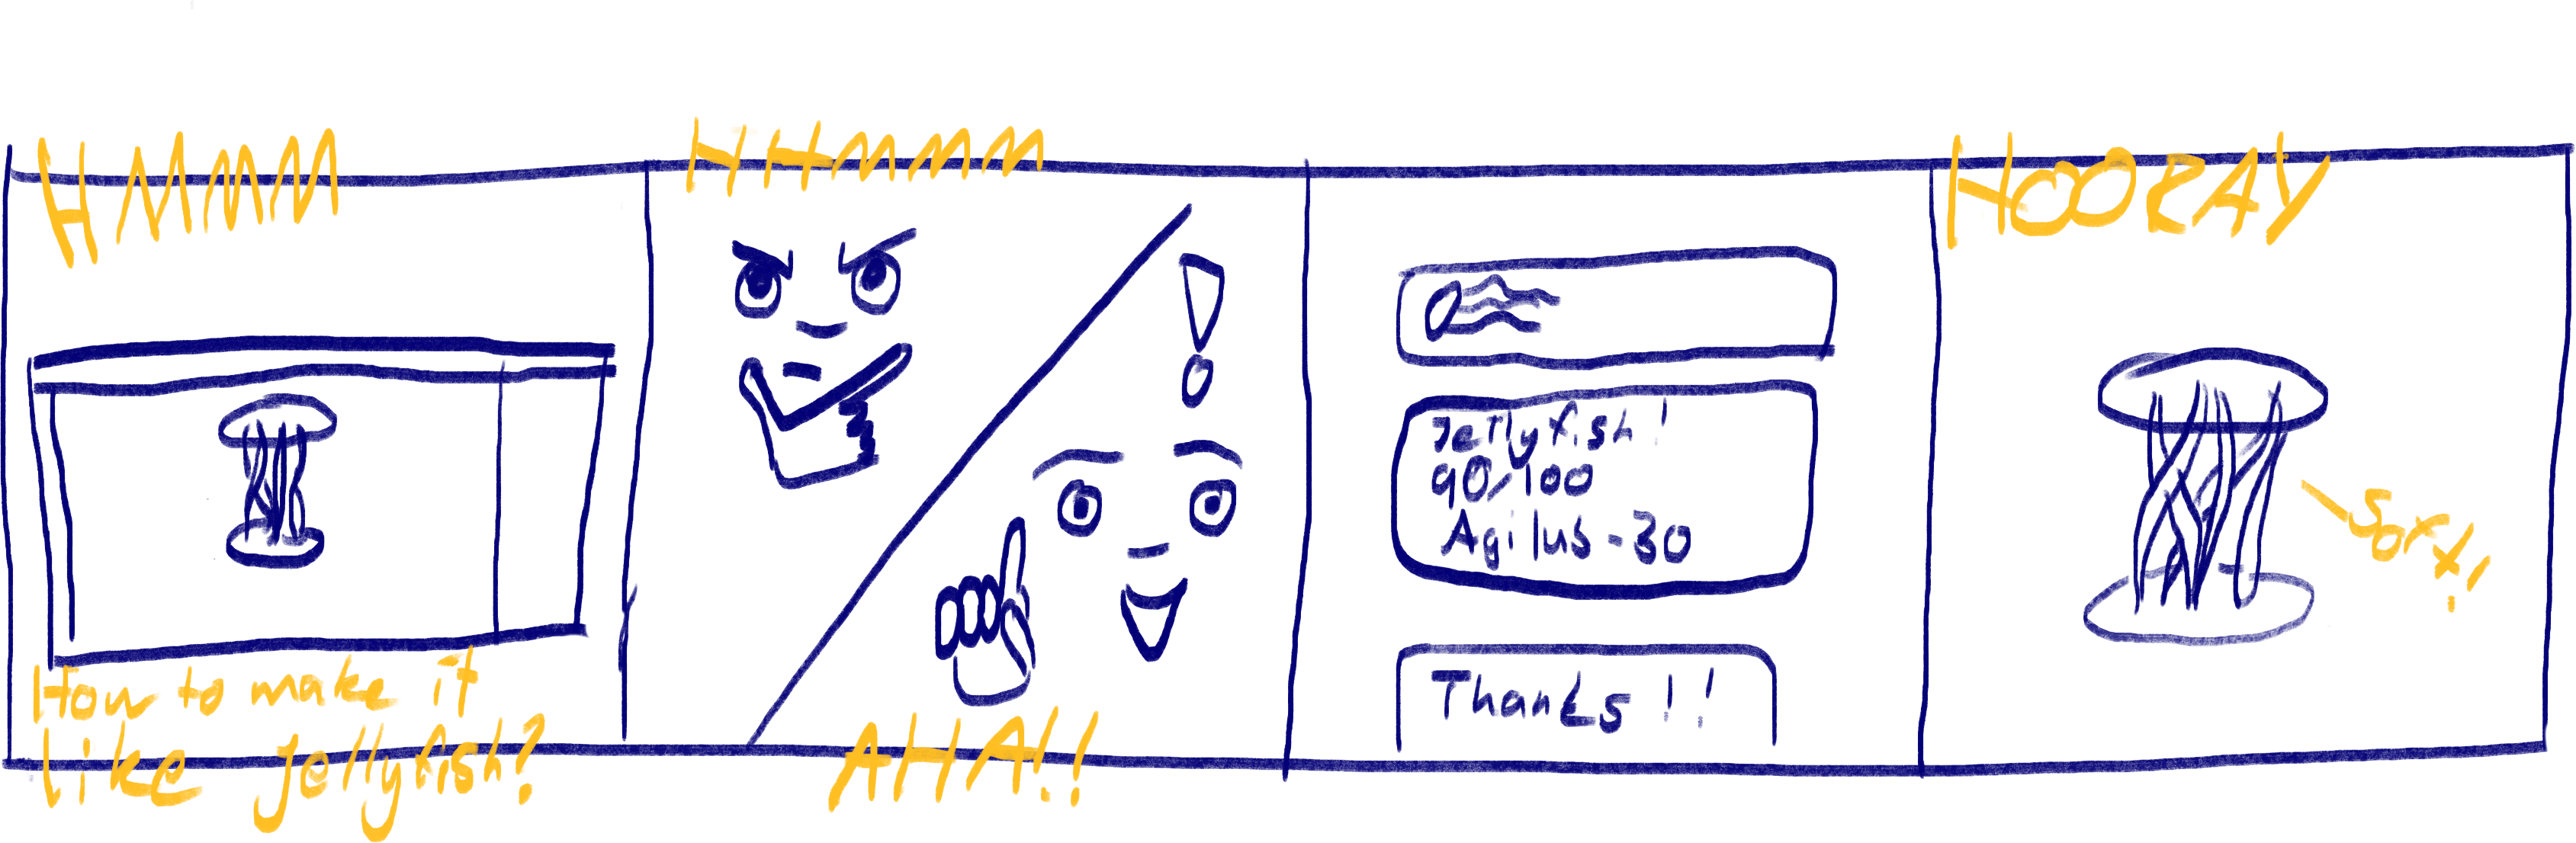 HMMMM
How to make it
like jellyfish?
HHMMMM
AHA!!
Jellyfish!
90/100
Agilus-30
Thanks!!
HOORAY
Soft!